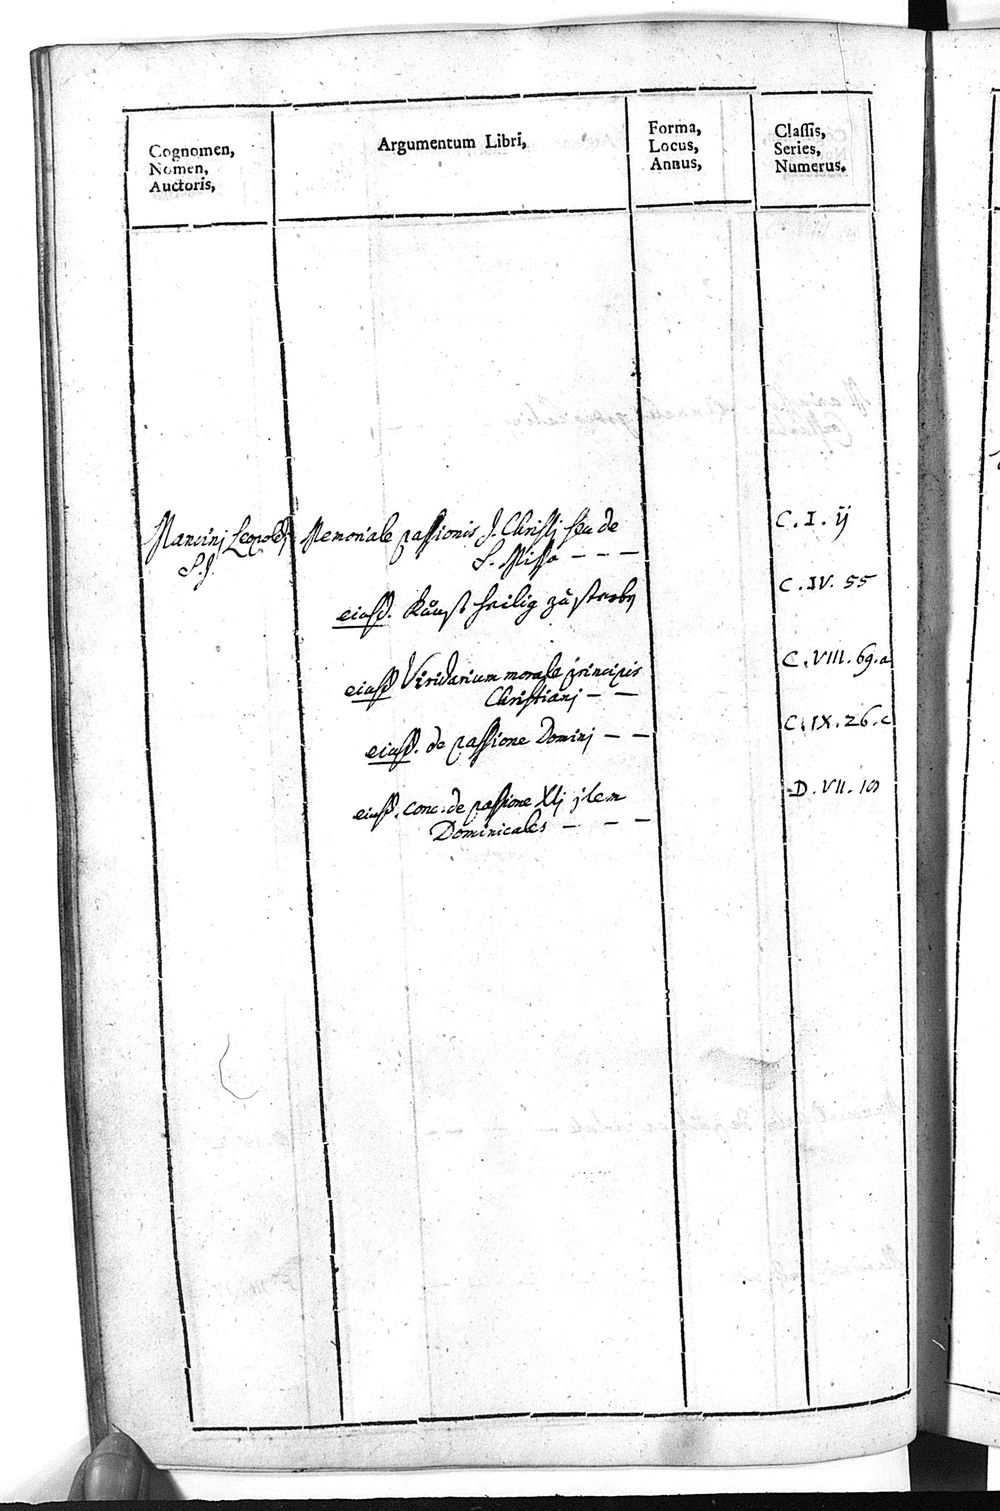 Cognomen,
Nomen,
Auctoris,
Argumentum Libri,
Forma,
Locus,
Annus,
Classis,
Series,
Numerus.
Mancinj Leopoldj
S.J.
Memoriale passionis J. Christj seu de
S. Missa – – –
C. I. ij
eiusd. Kůnst heilig zů sterbn
C. IV. 55
eiusd Viridarium morale principis
Christianj – –
C. VIII. 69. a
eiusd. de passione Dominj – –
C. IX. 26. c
eiusd. conc. de passione Xtj jtem
Dominicales – – –
D. VII. 101